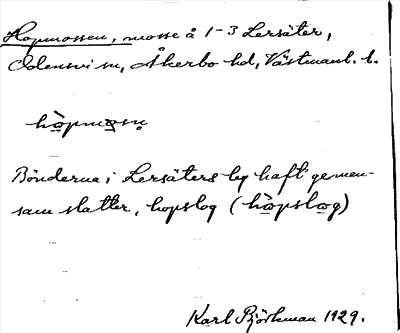 Hopmossen, mosse å 1-3 Lersäter,
Odensvi sn, Åkerbo hd, Västmanl. l.
hò̱pmo̱sn̥
Bönderna i Lersäters by haft gemen-
sam slatter, hopslog (hò̱pslo̱g)
Karl Björkman 1929.